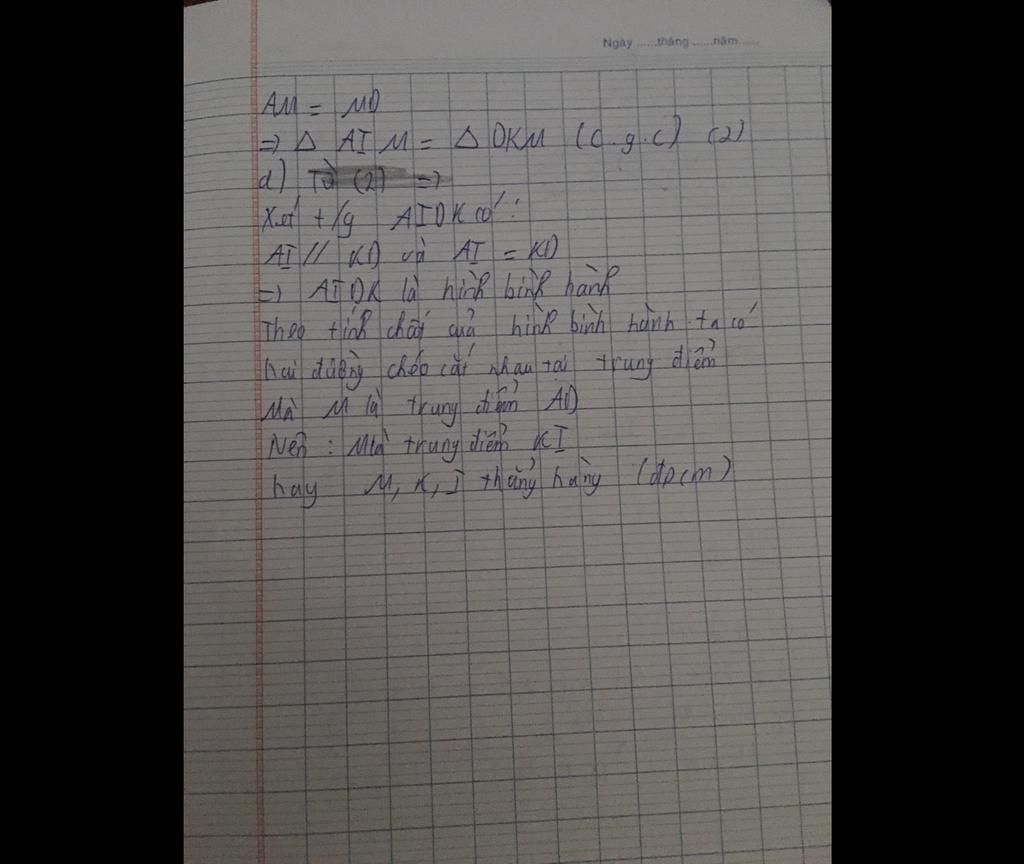 Ngày ......tháng ......năm......
AM = MD
=> Δ AIM = Δ DKM (c.g.c) (2)
d) Từ (2) =>
Xét t/g AIDK có :
AI // KD và AI = KD
=> AIDK là hình bình hành
Theo tính chất của hình bình hành ta có
hai đường chéo cắt nhau tại trung điểm
Mà M là trung điểm AD
Nên : M là trung điểm KI
hay M, K, I thẳng hàng (đpcm)